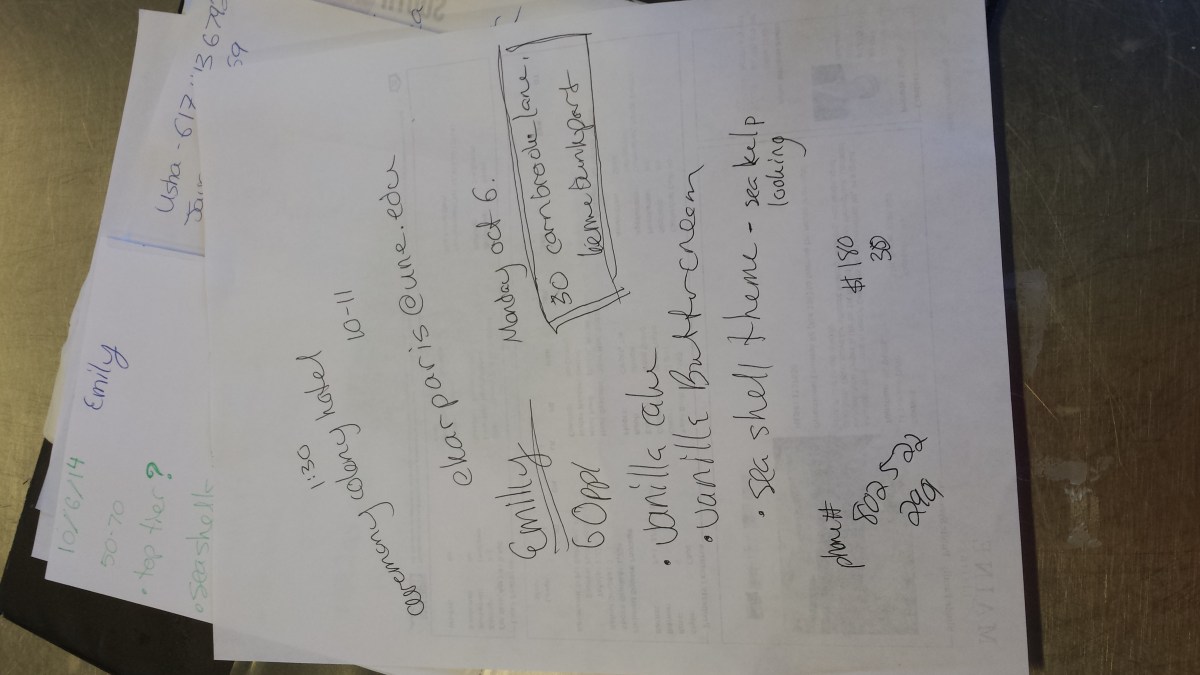 1:30
ceremony colony hotel 10-11
ekarparis@une.edu
Emilly Monday oct 6.
60ppl 30 cornbrooke lane,
kennebunkport
• Vanilla cake
• Vanilla Buttercreem
• sea shell theme - sea kelp
looking
phone# $180
802 5 22 30
299
10/6/14 Emily
50-70
• top ther?
• Seashells
Usha - 617
59